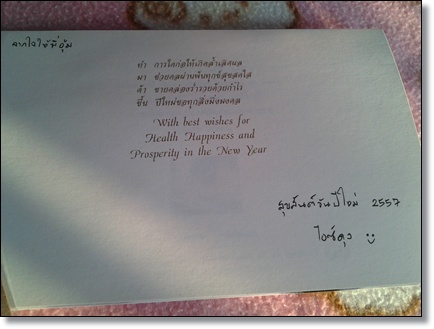 จากใจให้พี่อุ้ม
ทำ การใดก่อให้เกิดล้ำเลิศผล
มา ช่วยดลผ่านพ้นทุกข์สุขสดใส
ค้า ขายคล่องร่ำรวยด้วยกำไร
ขึ้น ปีใหม่ขอทุกสิ่งมิ่งมงคล
With best wishes for
Health Happiness and
Prosperity in the New Year
สุขสันต์วันปีใหม่ 2557